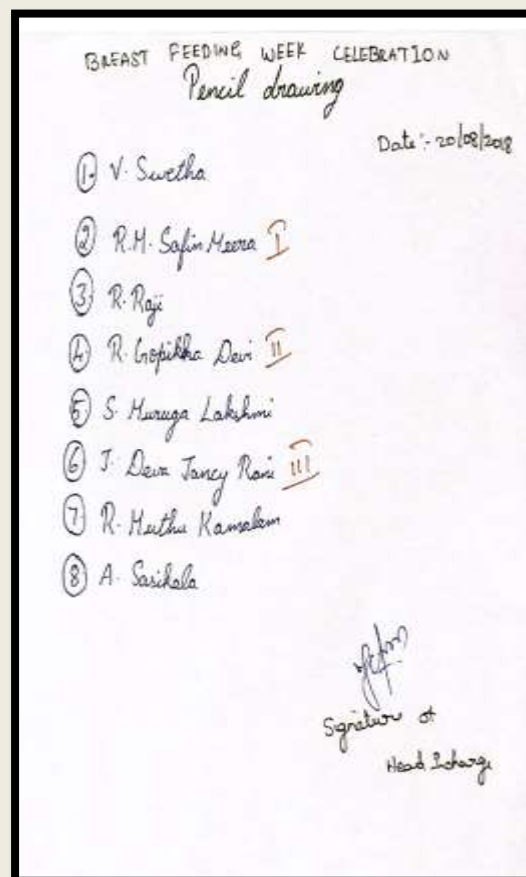 BREAST FEEDING WEEK CELEBRATION
Pencil drawing
Date:- 20/08/2018
① V. Swetha
② R.M. Safin Meera I
③ R. Raji
④ R. Gopikha Devi II
⑤ S. Muruga Lakshmi
⑥ J. Deva Jancy Rani III
⑦ R. Muthu Kamalam
⑧ A. Sasikala
Signature of
Head Incharge